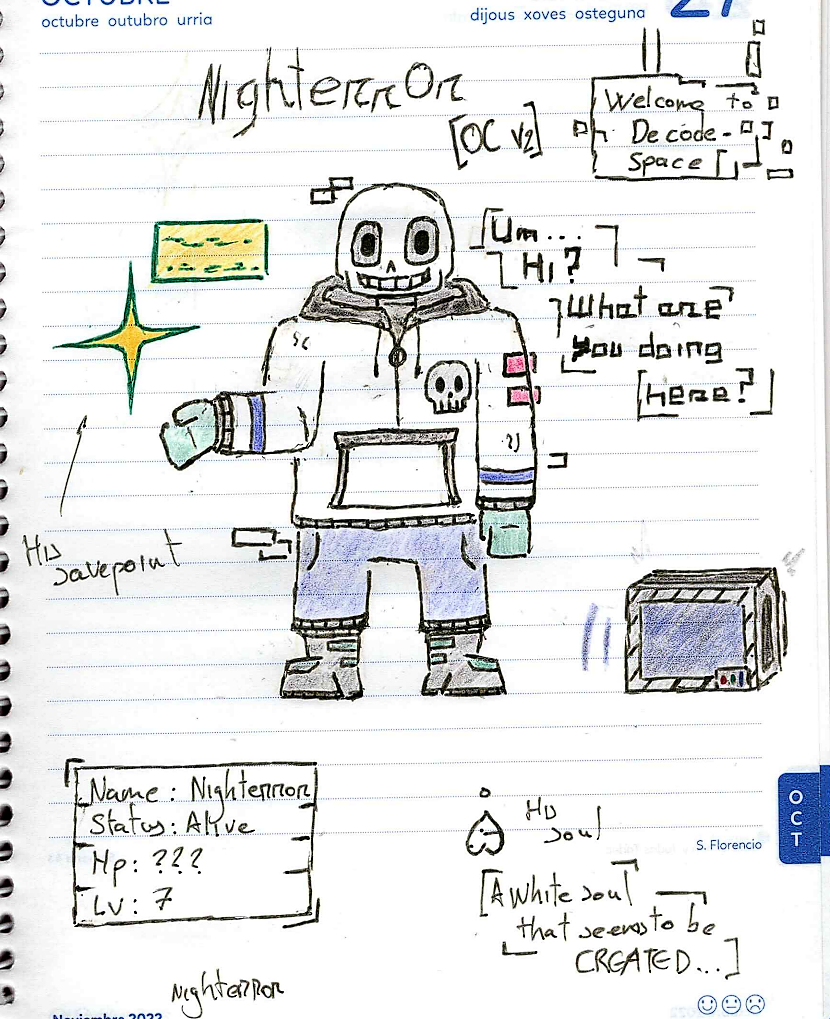 OCTUBRE
octubre outubro urria
dijous xoves osteguna
27
NighterrOr
[OC v2]
Welcome to
Decode-
Space []
[Um...
Hi?
What are
you doing
[here?]
His
savepoint
Name: Nighterror
Status: Alive
Hp: ???
LV: 7
His
soul
[A white soul
that seems to be
CREATED...]
OCT
S. Florencio
Nighterror
Noviembre 2022